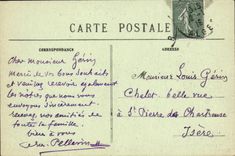 CARTE POSTALE
CORRESPONDANCE
ADRESSE
Cher Monsieur Gérin
Merci de vos bons souhaits
et veuillez recevoir également
les notres que nous vous
envoyons sincèrement.
recevez nos amitiés de
toute la famille.
bien à vous
Pellerin
Monsieur Louis Gérin
Chalet belle vue
à St Pierre de Chartreuse
Isère